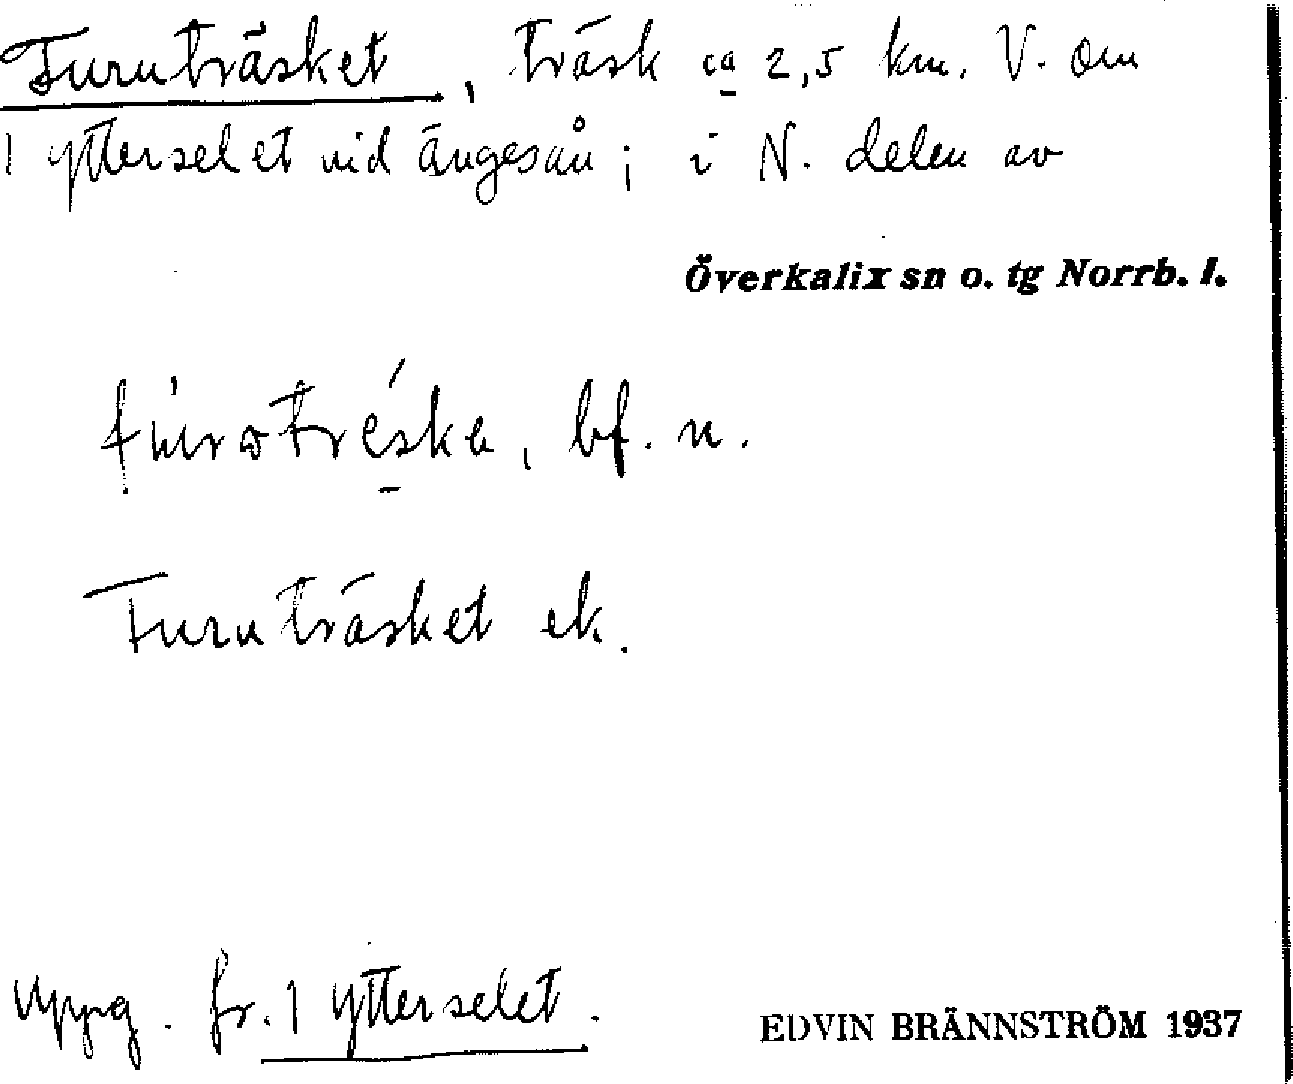 Furuträsket, träsk ca 2,5 km. V. om
1 ytterselet vid ängesån; i N. delen av
Överkalix sn o. tg Norrb. l.
bf. n.
Furuträsket ek.
Uppg. fr. 1 ytterselet.
EDVIN BRÄNNSTRÖM 1937